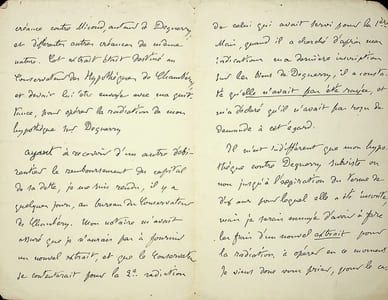 créance contre Miroud, autant de Deguerry,
et différentes autres créances de même
nature. Cet extrait était destiné au
Conservateur des Hypothèques de Chambéry,
et devait lui être envoyé avec ma quit-
tance, pour opérer la radiation de mon
hypothèque sur Deguerry.
ayant à recevoir d'un autre débi-
rentier le remboursement du capital
de sa dette, je me suis rendu, il y a
quelques jours, au bureau du Conservateur
de Chambéry. Mon notaire m'avait
assuré que je n'aurais pas à fournir
un nouvel extrait, et que le Conservateur
se contenterait pour la 2e radiation
de celui qui avait servi pour la 1ère
Mais, quand il a cherché d'après mes
indications ma dernière inscription
sur les biens de Deguerry, il a consta-
té qu'elle n'avait pas été rayée, et
m'a déclaré qu'il n'avait pas reçu de
demande à cet égard.
Il m'est indifférent que mon hypo-
thèque contre Deguerry subsiste ou
non jusqu'à l'expiration du terme de
dix ans pour lequel elle a été inscrite,
mais je serais ennuyé d'avoir à faire
les frais d'un nouvel extrait pour
la radiation à opérer en ce moment
Je viens donc vous prier, pour le cas